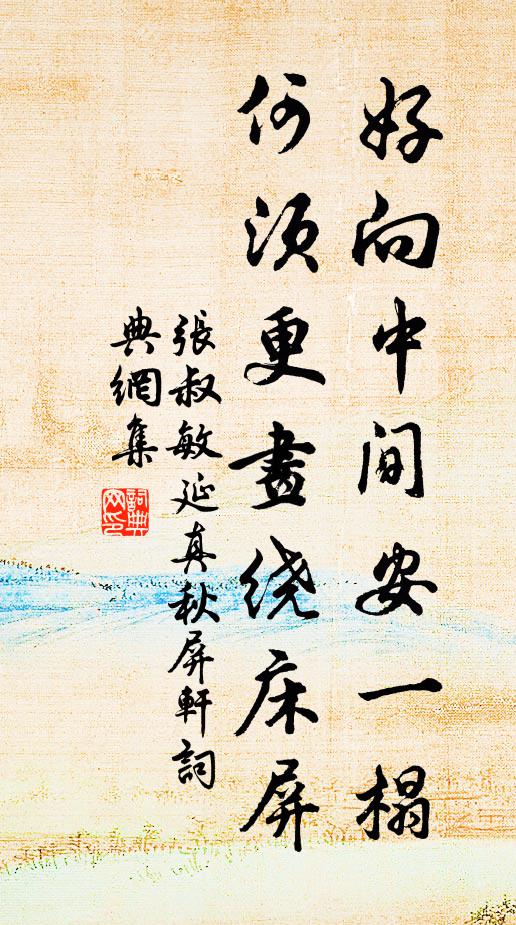 好向中间安一榻
何须更畫绕床屏
張叔敏延真秋屏軒詞
典網集
詞典
网印